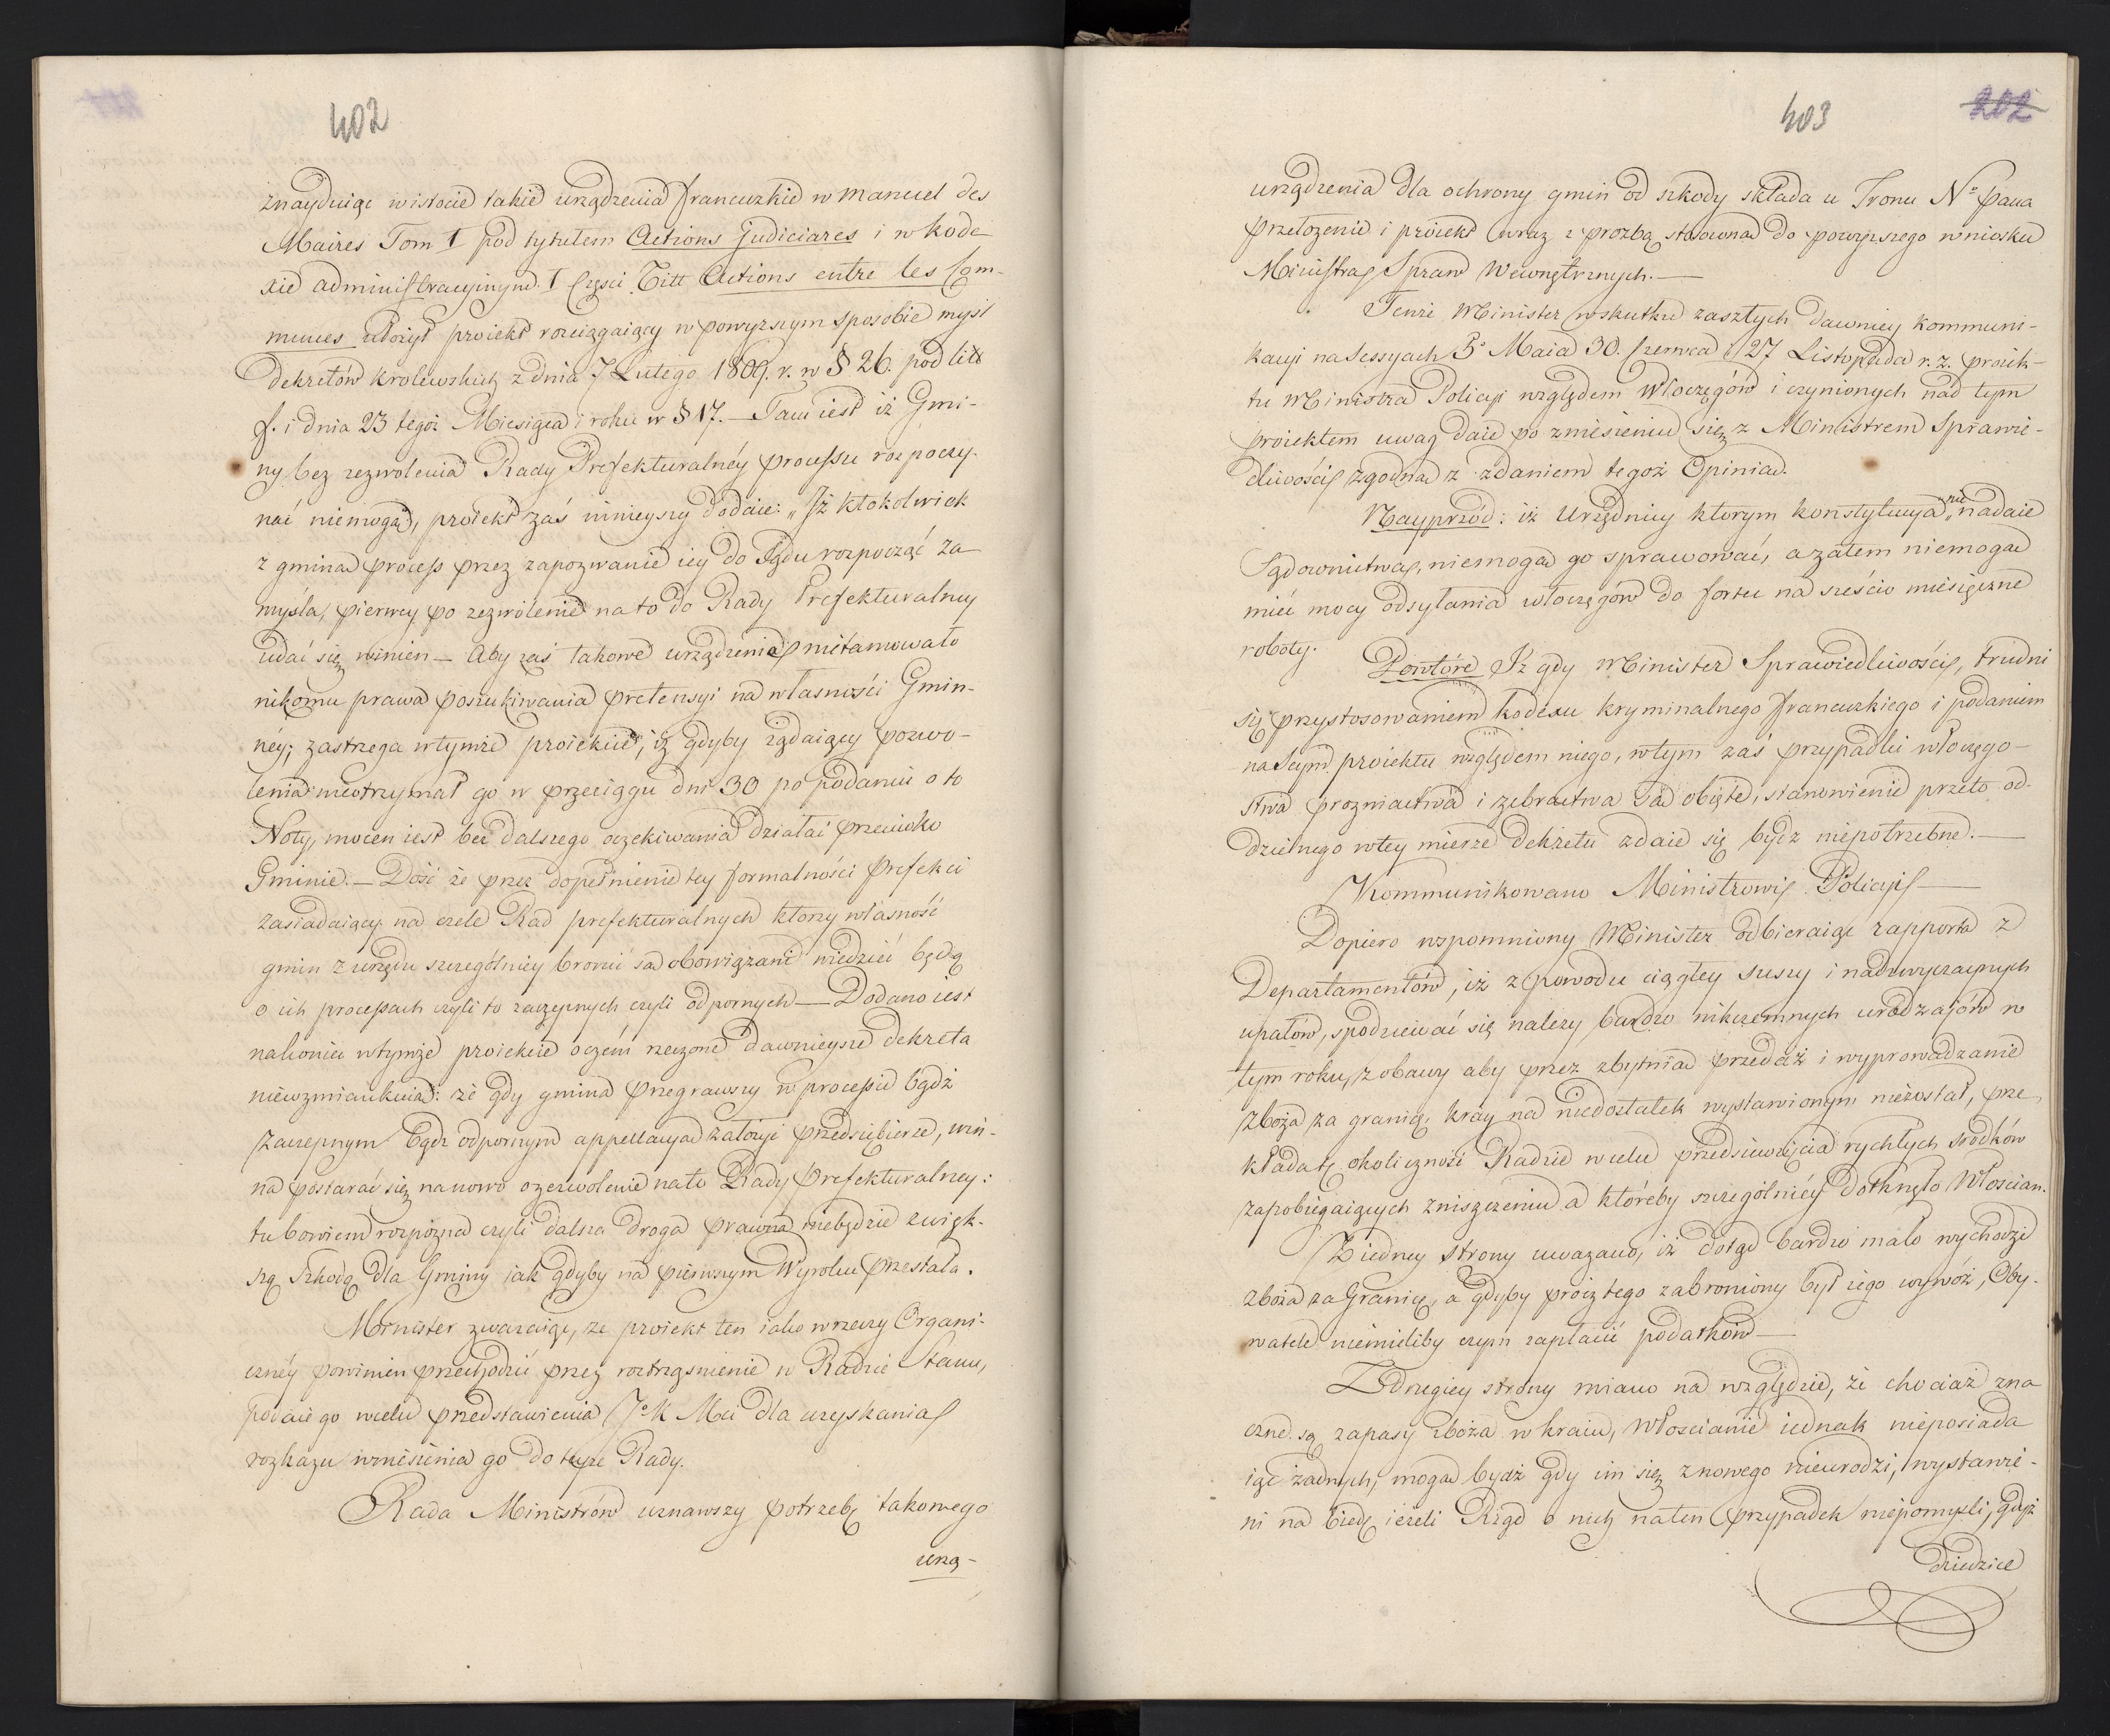 402
znayduiąc w istocie takie urządzenia francuzkie w Manuel des
Maires Tom I pod tytułem Actions Judiciares i w kode-
xie administracyinym I Częsci Titt Actions entre les Com-
munes ułożył proiekt rozciągaiący w powyższym sposobie mysl
dekretów krolewskich z dnia 7 Lutego 1809. r. w § 26. pod litt
f. i dnia 23 tegoż Miesiąca i roku w § 17. — Tam iest iż Gmi-
ny bez zezwolenia Rady Prefekturalnéy processu rozpoczy-
nać niemogą, proiekt zaś ninieyszy dodaie: „Iż ktokolwiek
z gminą process przez zapozwanie iey do Sądu rozpocząć za-
myśla, pierwey po zezwolenie na to do Rady Prefekturalney
udać się winien — Aby zaś takowe urządzenie nietamowało
nikomu prawa poszukiwania pretensyi na własności Gmin-
néy; zastrzega w tymże proiekcie, iż gdyby żądaiący pozwo-
lenia nieotrzymał go w przeciągu dni 30 po podaniu o to
Noty, mocen iest bez dalszego oczekiwania działać przeciwko
Gminie. — Dość że przez dopełnienie tey formalności Prefekci
zasiadaiący na czele Rad prefekturalnych ktorzy własność
gmin z urzędu szczególniey bronić są obowiązani wiedzieć będą
o ich processach czyli to zaczepnych czyli odpornych — Dodano iest
nakoniec w tymże proiekcie o czém rzeczone dawnieysze dekreta
niewzmiankuią: że gdy gmina przegrawszy w processie bądź
zaczepnym bądz odpornym appellacyą założyć przedsiębierze, win-
na postarać się nanowo o zezwolenie na to Rady Prefekturalney:
ta bowiem rozpozna czyli dalsza droga prawna niebędzie z więk-
szą szkodą dla Gminy jak gdyby na pierwszym Wyroku przestała.
Minister zważaiąc, że proiekt ten iako w rzeczy Organi-
cznéy powinien przechodzić przez roztrząsnienie w Radzie Stanu,
podaie go w celu przedstawienia Je K Mci dla uzyskania
rozkazu wniesienia go do teyże Rady.
Rada Ministrów uznawszy potrzebę takowego
urzą-
403
202
urządzenia dla ochrony gmin od szkody składa u Tronu No Pana
przełożenie i proiekt wraz z prozbą stosowną do powyższego wniosku
Ministra Spraw Wewnętrznych. —
Tenże Minister w skutku zaszłych dawniey kommuni-
kacyi na Sessyach 5o Maia 30. Czerwca i 27 Listopada r. z. proiek-
tu Ministra Policyi względem Włoczęgów i czynionych nad tym
proiektem uwag daie po zniesieniu się z Ministrem Sprawie-
dliwości zgodną z zdaniem tegoż Opinią.
Nayprzód: iż Urzędnicy ktorym konstytucya nie nadaie
Sądownictwa, niemogą go sprawować, a zatem niemogą
mieć mocy odsyłania włoczęgów do fortu na sześcio miesięczne
roboty.
Powtóre Iż gdy Minister Sprawiedliwości, trudni
się przystosowaniem kodexu kryminalnego francuzkiego i podaniem
na Seym proiektu względem niego, w tym zaś przypadki włoczego-
stwa prozniactwa i żebractwa są obięte, stanowienie przeto od-
dzielnego w tey mierze dekretu zdaie się bydz niepotrzebne. —
Kommunikowano Ministrowi Policyi —
Dopiero wspomniony Minister odbieraiąc rapporta z
Departamentów, iż z powodu ciągłey suszy i nadzwyczaynych
upałów, spodziewać się należy bardzo nikczemnych urodzajów w
tym roku, z obawy aby przez zbytnią przedaż i wyprowadzanie
zboża za granicę, kray na niedostatek wystawionym niezostał, prze-
kłada tę okoliczność Radzie w celu przedsięwzięcia rychłych srodków
zapobiegaiących zniszczeniu a któreby szczególniéy dotknęło Włościan.
Z iedney strony uwazano, iż dotąd bardzo mało wychodzi
zboża za Granicę, a gdyby prócz tego zabroniony był iego wywóz, Oby-
watele niemieliby czym zapłacić podatków —
Z drugiey strony miano na względzie, że chociaż zna-
czne są zapasy zboża w kraiu, Włościanie iednak nieposiada-
iąc żadnych, mogą bydź gdy im się znowego nieurodzi, wystawie-
ni na biedę ieżeli Rząd o nich na ten przypadek niepomyśli, gdyż
dziedzice